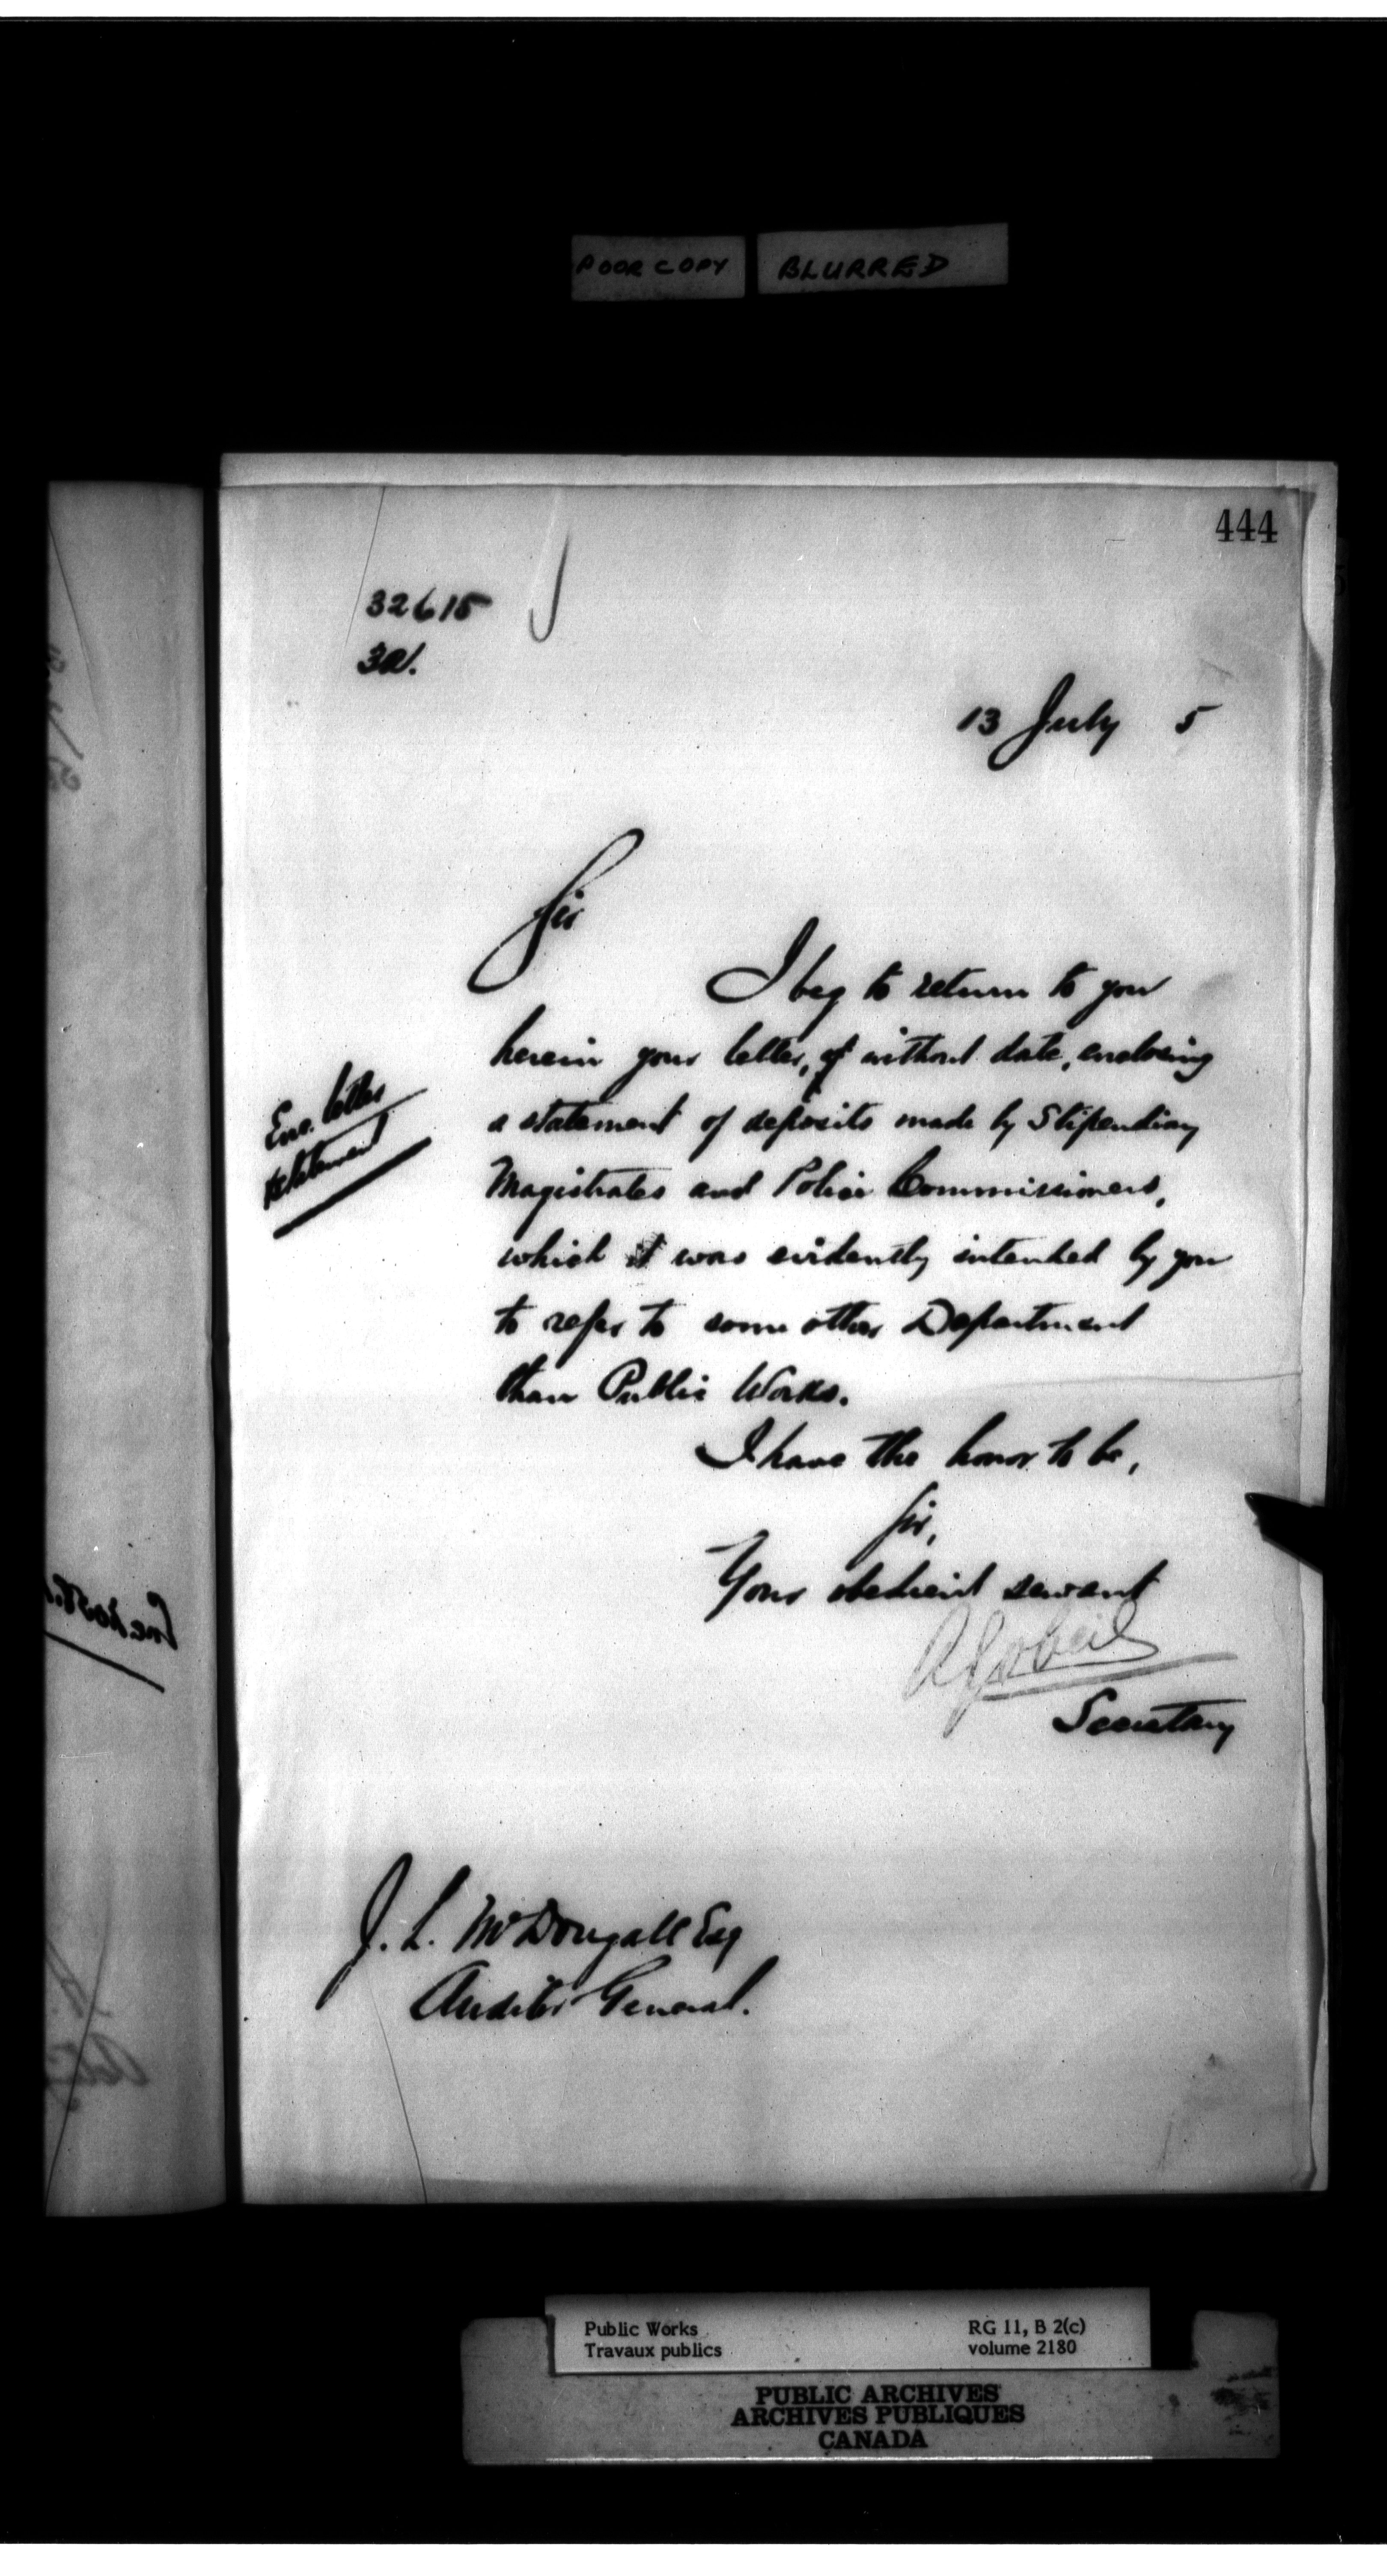 POOR COPY BLURRED
444
32615
13 July 5
Sir
I beg to return to you
herein your letter, of without date, enclosing
a statement of deposits made by Stipendiary
Magistrates and Police Commissioners,
which it was evidently intended by you
to refer to some other Department
than Public Works.
Enc. letter
statement
I have the honor to be,
Sir,
Your obedient servant
A Gobeil
Secretary
J. L. McDougall Esq
Auditor General.
Public Works RG 11, B 2(c)
Travaux publics volume 2180
PUBLIC ARCHIVES
ARCHIVES PUBLIQUES
CANADA